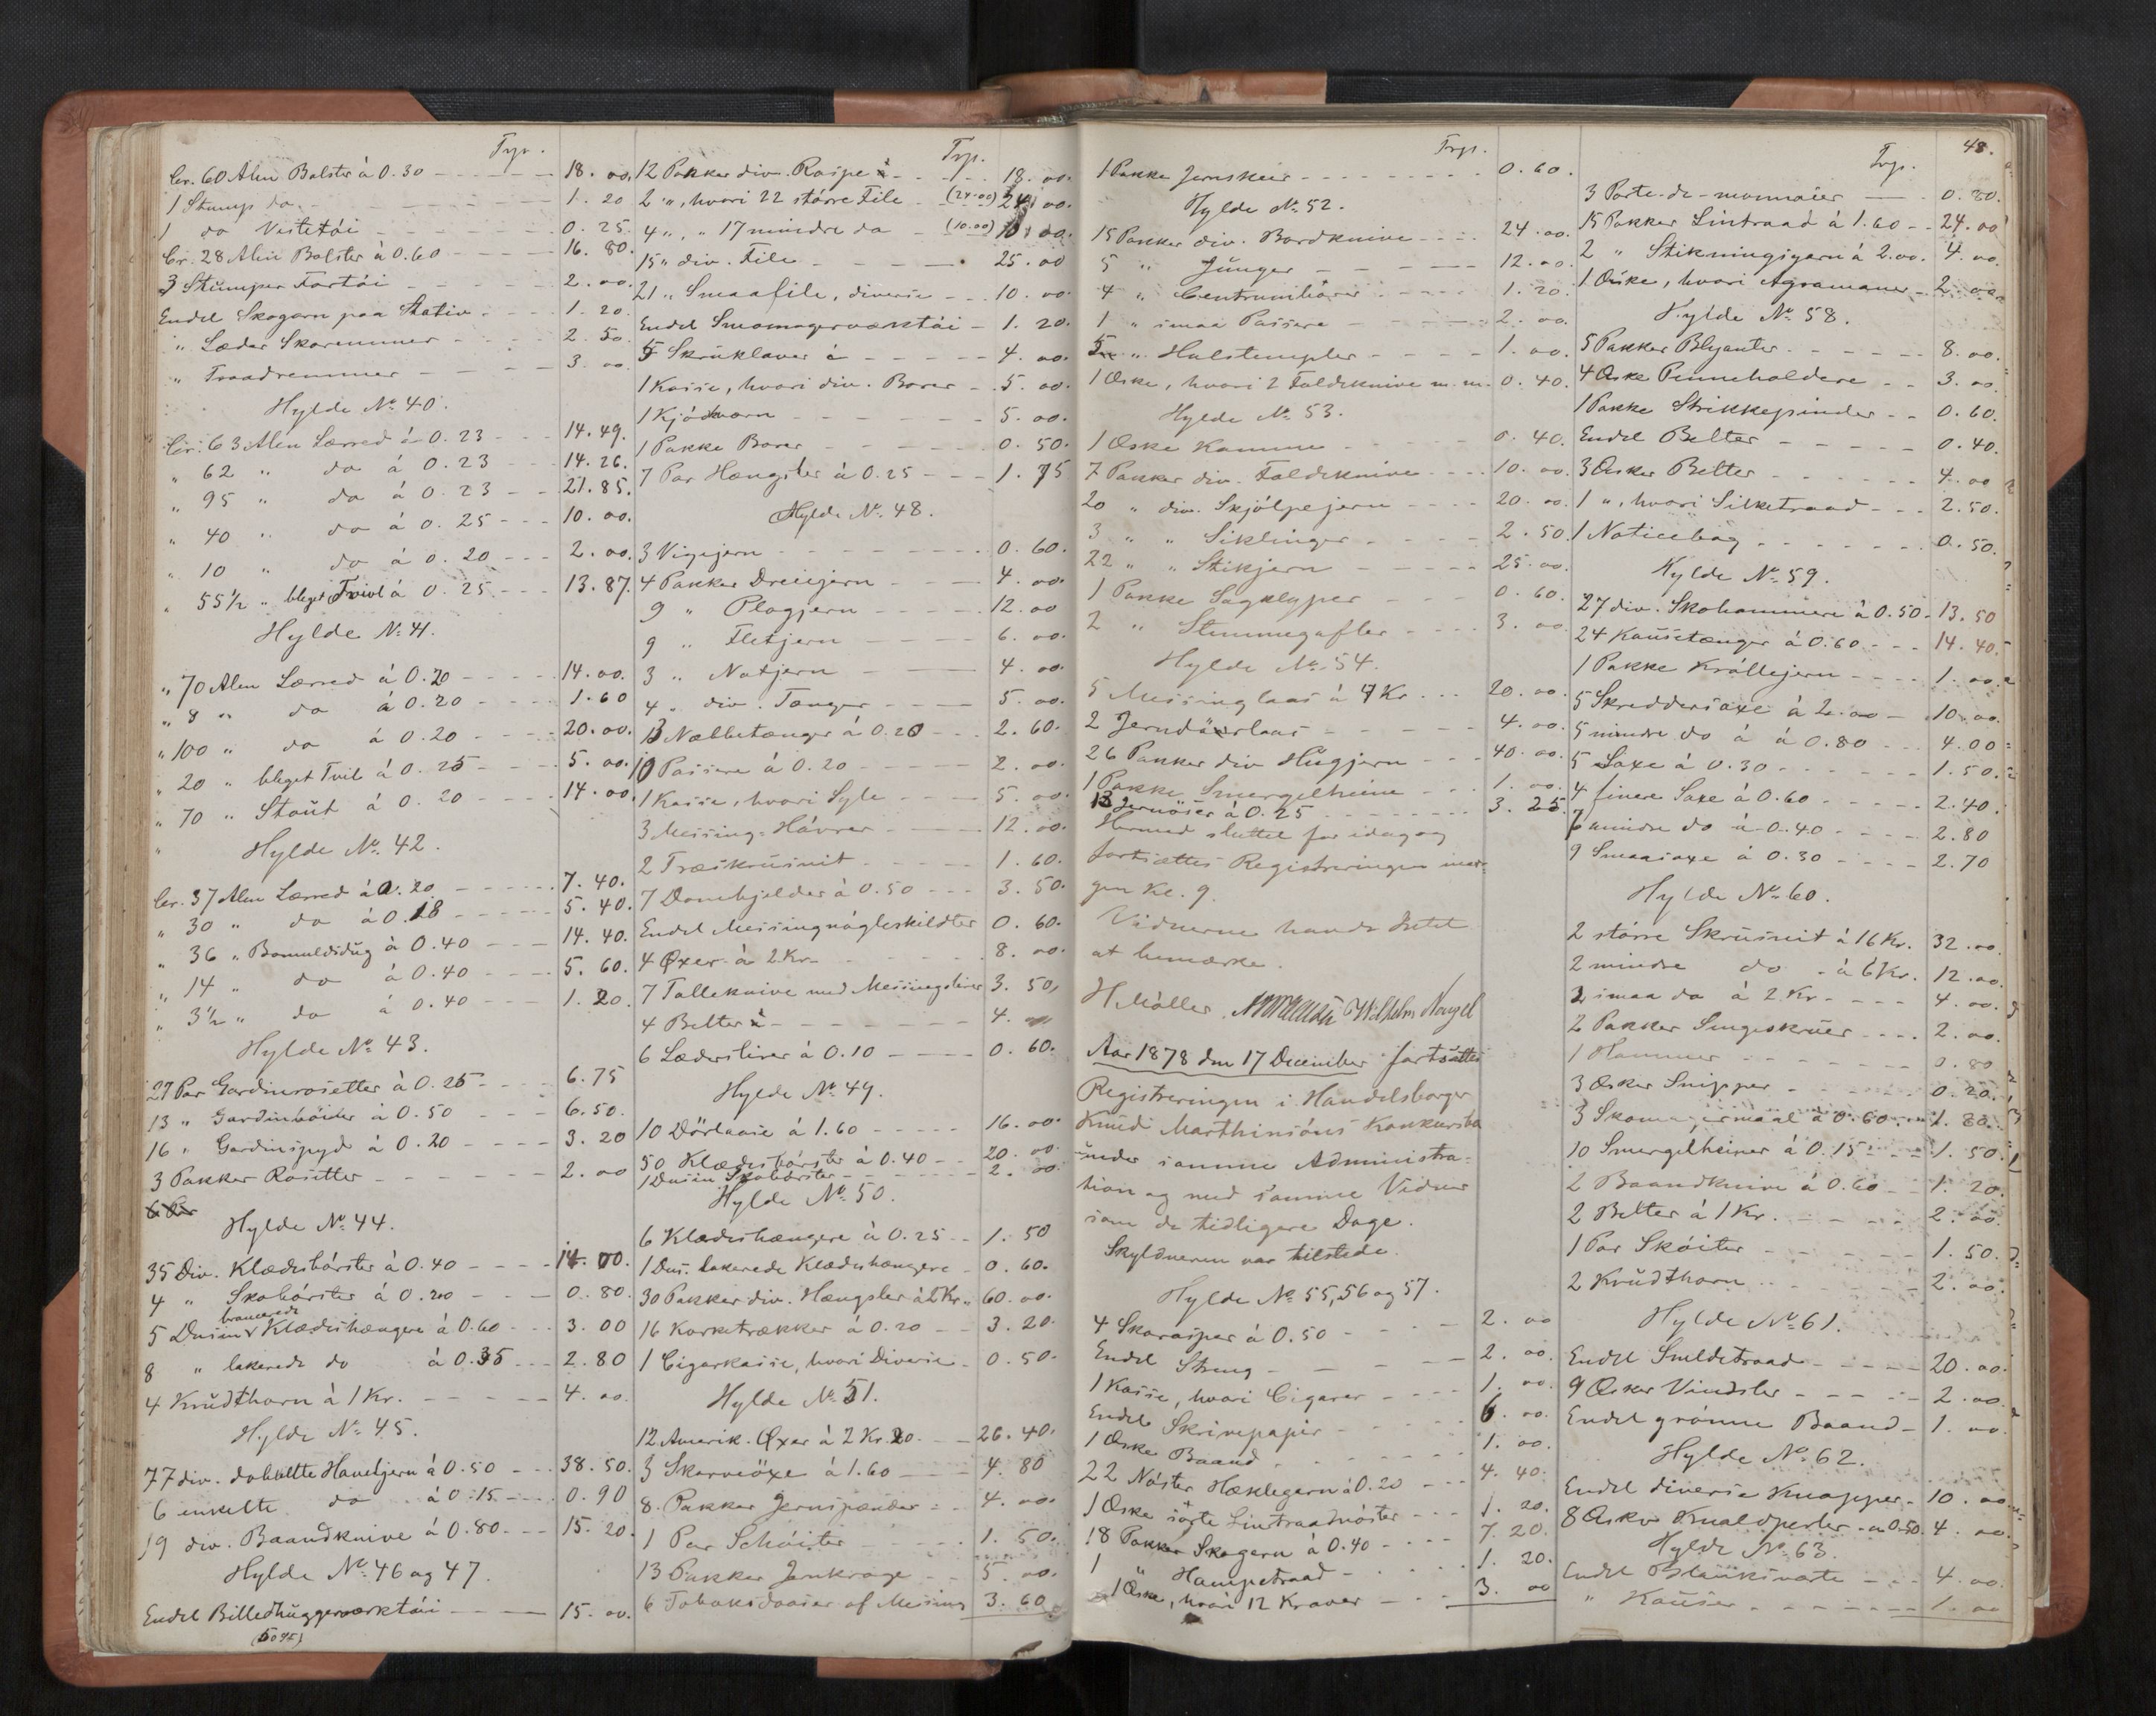 Trp.
Cr. 60 Alen Bolster à 0.30 18.00.
1 Stump do 1.20
1 do Vestetöi 0.25
Cr. 28 Alen Bolster à 0.60 16.80.
3 Stumper Fortöi 2.00.
Endel Skogarn paa Stativ 1.20.
" Læder Skoremmer 2.50.
" Traadremmer 3.00
Hylde No 40.
Cr. 63 Alen Lærred à 0.23 14.49.
" 62 " do à 0.23 14.26.
" 95 " do à 0.23 21.85.
" 40 " do à 0.25 10.00.
" 10 " do à 0.20 2.00.
" 55 1/2 " bleget Tvil à 0.25 13.87.
Hylde No 41.
" 70 Alen Lærred à 0.20 14.00.
" 8 " do à 0.20 1.60
" 100 " do à 0.20 20.00.
" 20 " bleget Tvil à 0.25 5.00.
" 70 " Stout à 0.20 14.00.
Hylde No 42.
Cr. 37 Alen Lærred à 0.20 7.40.
" 30 " do à 0.18 5.40.
" 36 " Bomuldsdug à 0.40 14.40.
" 14 " do à 0.40 5.60.
" 3 1/2 " do à 0.40 1.20.
Hylde No 43.
27 Par Gardinrosetter à 0.25 6.75
13 " Gardin à 0.50 6.50.
16 " Gardinspyd à 0.20 3.20
3 Pakker Rosetter 2.00
Hylde No 44.
35 Div. Klædesbörster à 0.40 14.00.
4 " Skobörster à 0.20 0.80.
bronerede
5 Dusin Klædeshængere à 0.60 3.00
8 " lakerede do à 0.35 2.80
4 Krudthorn à 1 Kr. 4.00.
Hylde No 45.
77 div. dobbelte Høveljern à 0.50 38.50.
6 enkelte do à 0.15 0.90
19 div. Baandknive à 0.80 15.20.
Hylde No 46 og 47.
Endel Billedhuggerværktöi 15.00.
Trp.
12 Pakker div. Raspe 18.00.
2 ", hvori 22 större File (24.00) 24.00.
4 ", " 17 mindre do (10.00) 10.00.
15 " div. File 25.00
21 " Smaafile, diverse 10.00.
Endel Smomagerværktöi 1.20.
5 Skruklaver à 4.00.
1 Kasse, hvori div. Borer 5.00.
1 Kjödkvarn 5.00.
1 Pakke Borer 0.50.
7 Par Hængsler à 0.25 1.75
Hylde No. 48.
3 Vigejern 0.60.
4 Pakker Dreiejern 4.00.
9 " Plogjern 12.00
9 " Fletjern 6.00.
3 " Notjern 4.00.
4 " div. Tænger 5.00.
13 Næbbetænger à 0.20 2.60.
10 Passere à 0.20 2.00.
1 Kasse, hvori Syle 5.00.
3 Messing-Hávrer 12.00.
2 Træskrusnit 1.60.
7 Dombjelder à 0.50 3.50.
Endel Messingnögleskildter 0.60.
4 Øxer à 2 Kr. 8.00.
7 Tolleknive med Messingslirer 3.50.
4 Belter 4.
6 Læderslirer à 0.10 0.60.
Hylde No 49.
10 Dörlaase à 1.60 16.00.
50 Klædesbörster à 0.40 20.00.
1 Dusin Skobörster 2.00.
Hylde No 50.
6 Klædeshængere à 0.25 1.50
1 Dus. lakerede Klædeshængere 0.60.
30 Pakker div. Hængsler à 2 Kr. 60.00.
16 Korketrækker à 0.20 3.20.
1 Cigarkasse, hvori Diverse 0.50.
Hylde No 51.
12 Amerik. Øxer à 2 Kr. 20. 26.40.
3 Skarveöxe à 1.60 4.80
8 Pakker Jernspænder 4.00.
1 Par Schöiter 1.50.
13 Pakker Jernkroge 5.00.
6 Tobaksdaaser af Messing 3.60
Trp.
1 Pakke Jernskeer 0.60.
Hylde No 52.
15 Pakker div. Bordknive 24.00.
5 " Junger 12.00.
4 " Centrumbörer 1.20.
1 " smaa Passere 2.00.
5 " Hulstempler 1.00.
1 Æske, hvori 2 Foldeknive m. m. 0.40.
Hylde No 53.
1 Æske Kamme 0.40.
7 Pakker div. Foldeknive 10.00.
20 " div. Skjölpejern 20.00.
3 " " Siklinger 2.50.
22 " " Stikjern 25.00.
1 Pakke Sagklyper 0.60.
2 " Stemmegafler 3.00.
Hylde No 54.
5 Messinglaas à 4 Kr 20.00.
2 Jerndörslaas 4.00.
26 Pakker div Hugjern 40.00.
1 Pakke Smergelheine 1.00.
13 Jernöser à 0.25 3.25.
Hermed sluttet for idag og
fortsættes Registreringen mor-
gen Kl. 9.
Vidnerne havde Intet
at bemærke.
H. Möller. Wilhelm Nagel
Aar 1878 den 17 December fortsattes
Registreringen i Handelsborger
Knud Marthinsöns Konkursbo
under samme Administra-
tion og med samme Vidner
som de tidligere Dage.
Skyldneren var tilstede.
Hylde No 55, 56 og 57.
4 Skorasper à 0.50 2.00
Endel Streng 2.00.
1 Kasse, hvori Cigarer 1.00.
Endel Skrivepapir 6.00.
1 Æske Baand 1.00.
22 Nöster Hæklegarn à 0.20 4.40.
1 Æske sorte Lintraadnöster 1.20.
18 Pakker Skogarn à 0.40 7.20.
1 " Hampetraad 1.20.
1 Æske, hvori 12 Kraver 3.00
48.
Trp.
3 Porte-de-monnaier 0.80.
15 Pakker Lintraad à 1.60 24.00
2 " Stikningsgarn à 2.00. 4.00.
1 Æske, hvori Agramaner 2.00.
Hylde No 58.
5 Pakker Blyanter 8.00.
4 Æske Penneholdere 3.00.
1 Pakke Strikkepinder 0.60.
Endel Belter 0.40.
3 Æsker Belter 4.00
1 ", hvori Silketraad 2.50.
1 Noticebog 0.50.
Hylde No 59.
27 div. Skohammere à 0.50 13.50
24 Kausetænger à 0.60 14.40.
1 Pakke Kröllejern 1.00.
5 Skreddersaxe à 2.00 10.00.
5 mindre do à à 0.80 4.00
5 Saxe à 0.30 1.50.
4 finere Saxe à 0.60 2.40.
7 mindre do à 0.40 2.80
9 Smaasaxe à 0.30 2.70
Hylde No 60.
2 större Skrusnit à 16 Kr. 32.00.
2 mindre do à 6 Kr. 12.00.
2 smaa do à 2 Kr 4.00.
2 Pakker Sengeskruer 2.00.
1 Hammer 0.80
3 Æsker Snipper 0.20.
3 Skomagermaal à 0.60 1.80.
10 Smergelheiner à 0.15 1.50.
2 Baandknive à 0.60 1.20.
2 Belter à 1 Kr. 2.00.
1 Par Sköiter 1.50.
2 Krudthorn 2.00.
Hylde No 61.
Endel Smeldetraad 20.00.
9 Æsker Vindsler 2.00.
Endel grönne Baand 1.00.
Hylde No 62.
Endel diverse Knapper 10.00.
8 Æsker Knaldperler à 0.50. 4.00.
Hylde No 63.
Endel Blanksværte 4.00.
" Kauser 1.00